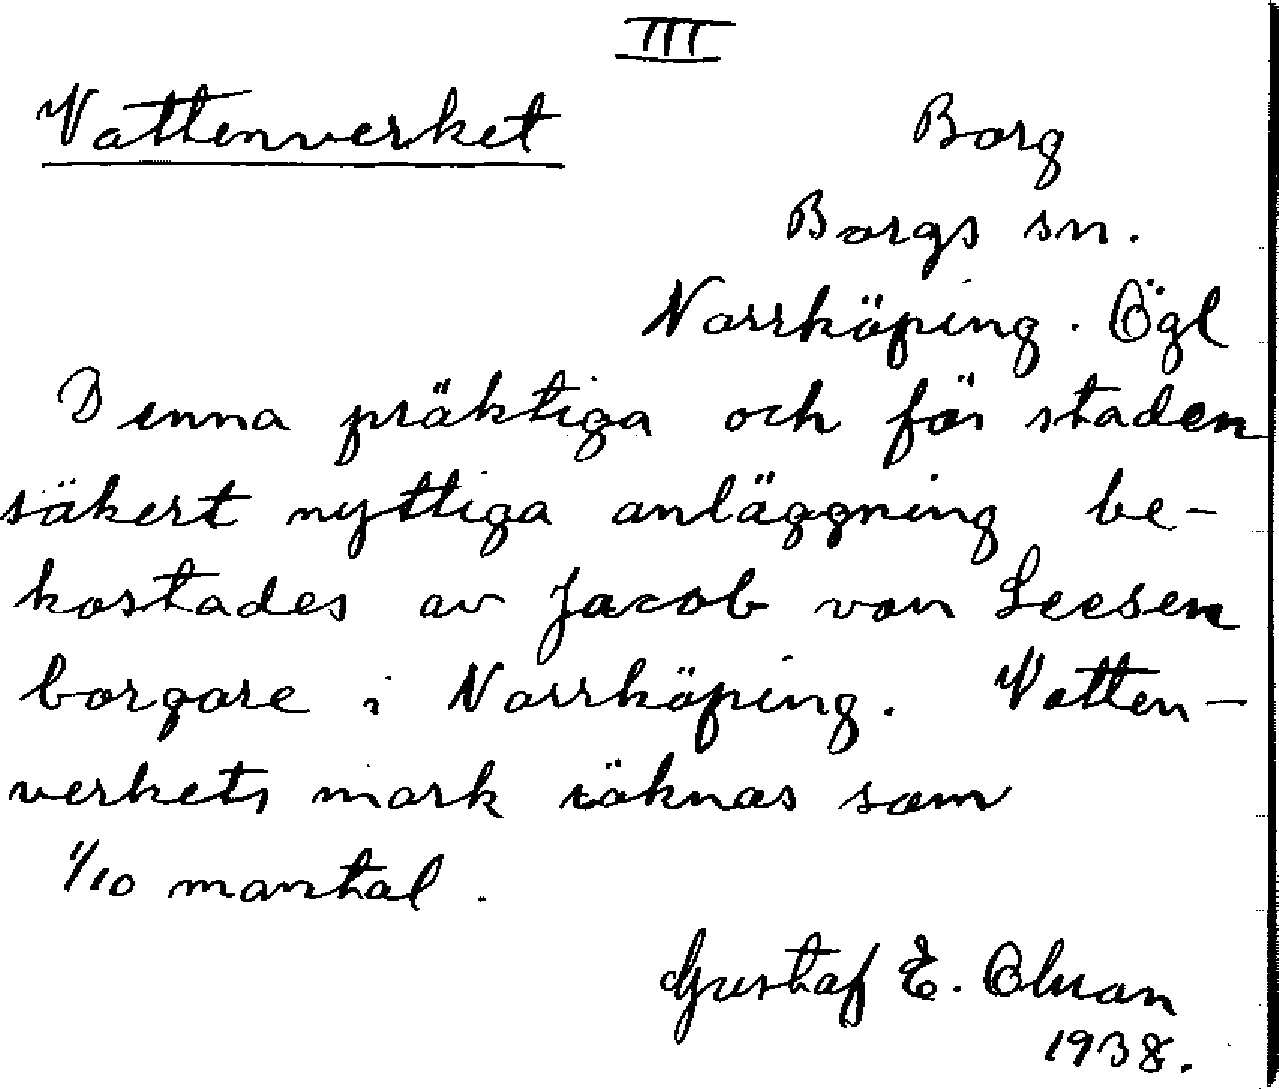 III
Vattenverket
Borg
Borgs sn.
Norrköping. Ögl
Denna präktiga och för staden
säkert nyttiga anläggning be-
kostades av Jacob von Leesen
borgare i Norrköping. Vatten-
verkets mark räknas som
1/10 mantal.
Gustaf E.
1938.